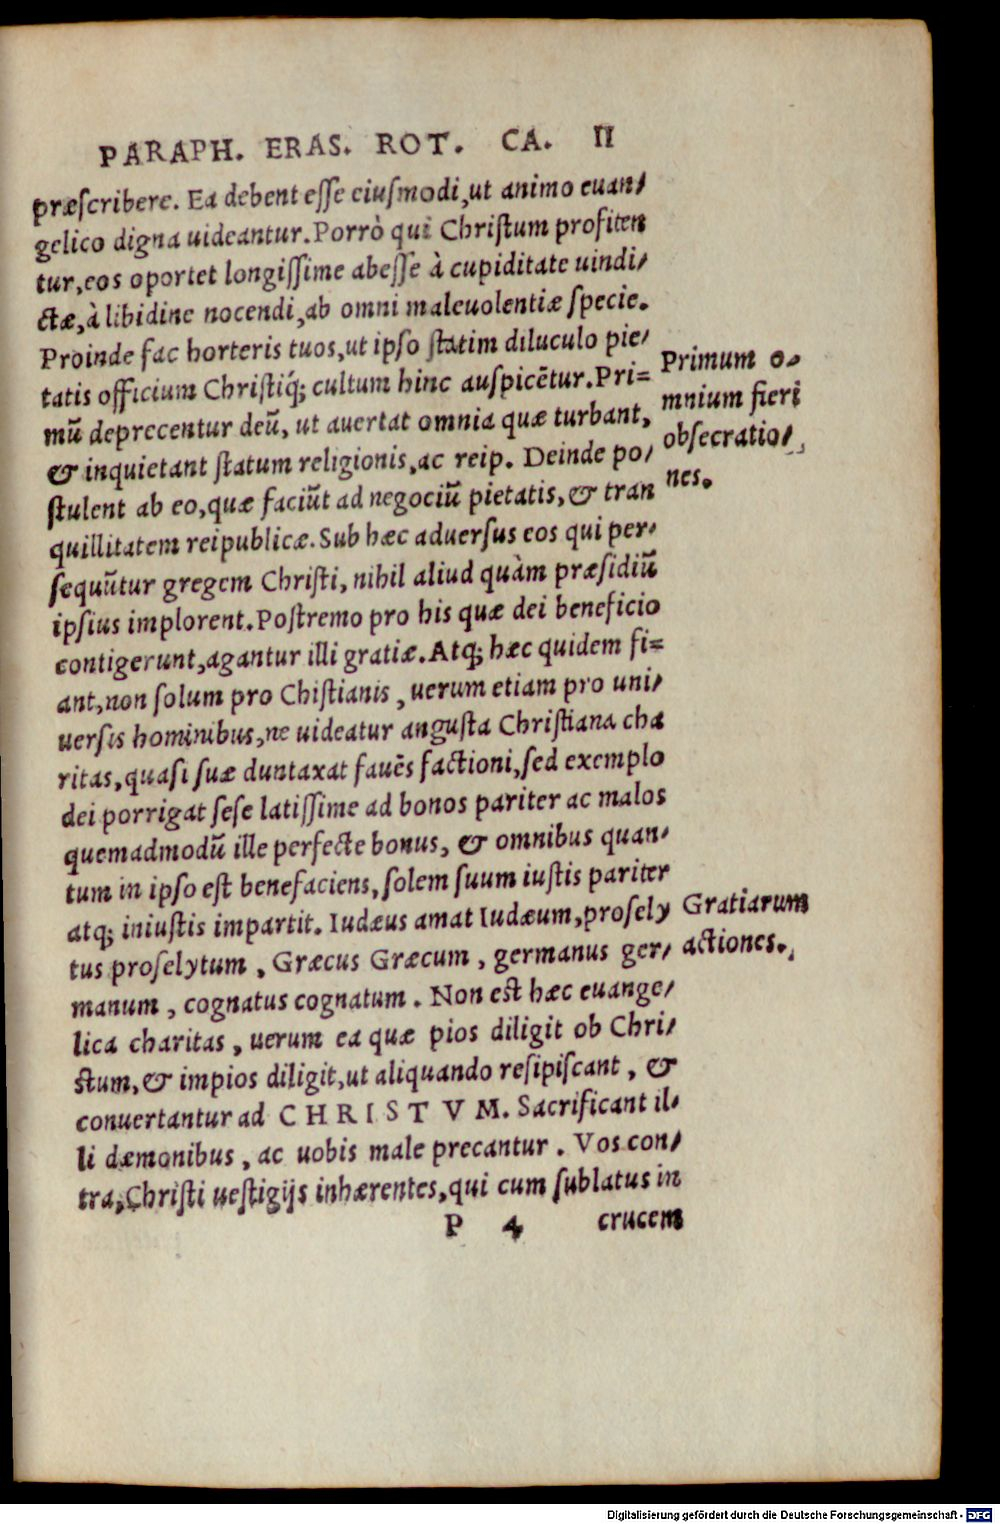 PARAPH. ERAS. ROT. CA. II
præſcribere. Ea debent eſſe eiuſmodi,ut animo euan/
gelico digna uideantur.Porrò qui Chriſtum profiten
tur,eos oportet longiſſime abeſſe à cupiditate uindi/
ctæ,à libidine nocendi,ab omni maleuolentiæ ſpecie.
Proinde fac horteris tuos,ut ipſo ſtatim diluculo pie/
tatis officium Chriſtiq́; cultum hinc auſpicētur.Pri=
mū deprecentur deū, ut auertat omnia quæ turbant,
& inquietant ſtatum religionis,ac reip. Deinde po/
ſtulent ab eo,quæ faciūt ad negociū pietatis,& tran
quillitatem reipublicæ.Sub hæc aduerſus eos qui per/
ſequūtur gregem Chriſti, nihil aliud quàm præſidiū
ipſius implorent.Poſtremo pro his quæ dei beneficio
contigerunt,agantur illi gratiæ.Atq; hæc quidem fi=
ant,non ſolum pro Chiſtianis, uerum etiam pro uni/
uerſis hominibus,ne uideatur anguſta Chriſtiana cha
ritas,quaſi ſuæ duntaxat fauēs factioni,ſed exemplo
dei porrigat ſeſe latiſſime ad bonos pariter ac malos
quemadmodū ille perfecte bonus, & omnibus quan/
tum in ipſo eſt benefaciens,ſolem ſuum iuſtis pariter
atq; iniuſtis impartit. Iudæus amat Iudæum,proſely
tus proſelytum, Græcus Græcum, germanus ger/
manum, cognatus cognatum. Non eſt hæc euange/
lica charitas, uerum ea quæ pios diligit ob Chri/
ſtum,& impios diligit,ut aliquando reſipiſcant, &
conuertantur ad C H R I S T V M. Sacrificant il/
li dæmonibus, ac uobis male precantur. Vos con/
tra,Chriſti ueſtigijs inhærentes,qui cum ſublatus in
P 4 crucem
Primum o/
mnium fieri
obſecratio/
nes.
Gratiarum
actiones.
Digitalisierung gefördert durch die Deutsche Forschungsgemeinschaft - DFG